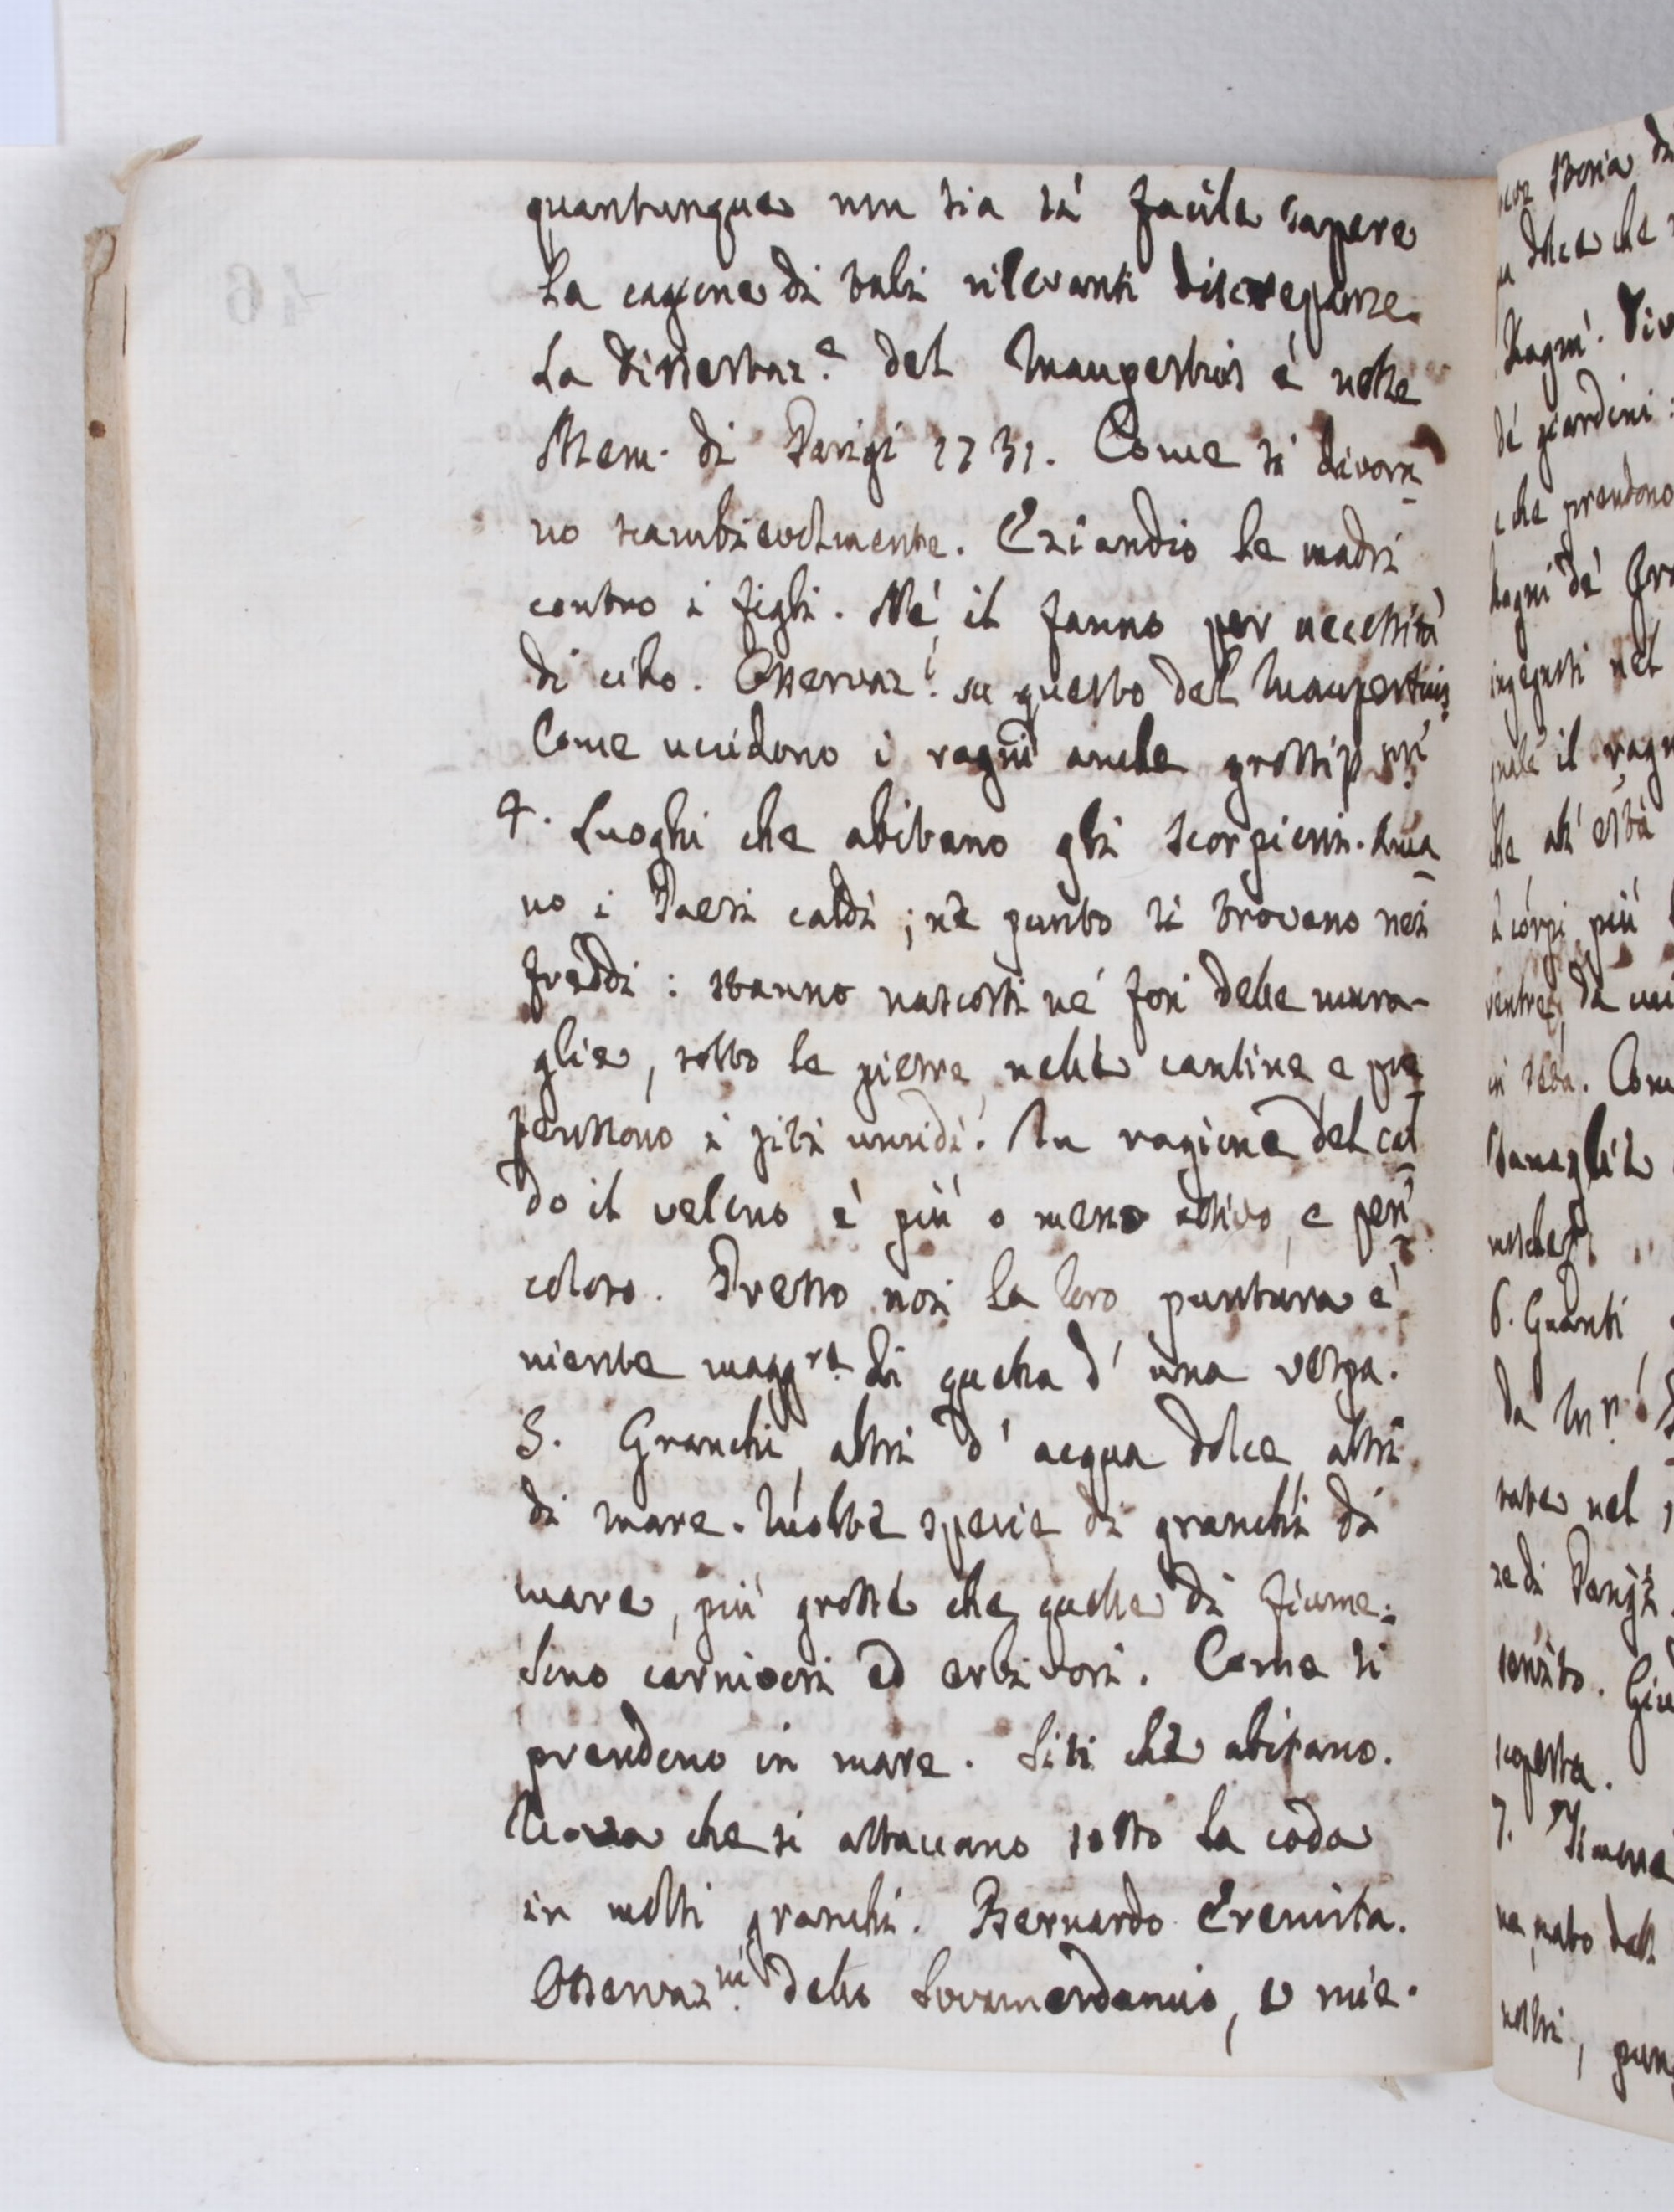 quantunque non sia sì facile sapere
la cagione di tali rilevanti discrepanze.
La Dissertaz.e del Maupertuis è nelle
Mem. di Parigi 1731. Come si divora-
no scambievolmente. Eziandio le madri
contro i figli. Né il fanno per necessità
di cibo. Osservaz.i su questo del Maupertuis.
Come uccidono i ragni anche grossi
4. Luoghi che abitano gli scorpioni. Ama-
no i Paesi caldi; nè punto si trovano nei
freddi: stanno nascosti ne' fori delle mura-
glie, sotto le pietre, nelle cantine e pre-
feriscono i siti umidi. In ragione del cal-
do il veleno è più o meno attivo, e peri-
coloso. Presso noi la loro puntura è
niente magg.re di quella d' una vespa.
5. Granchi altri d' acqua dolce altri
di mare. Molte specie di granchi di
mare, più grosse che quelle di fiume.
Sono carnivori ed erbivori. Come si
prendono in mare. Siti che abitano.
Uova che si attaccano sotto la coda
in molti granchi. Bernardo Eremita.
Osservaz.ni dello Sovamerdamio, e mie.
46
dolce che
Ragni. Viv
de' giardini
che prendono
ragni de'
nel
il ragn
più
ventre, da cui
Com
6. Quanti
nel
ze di Parigi.
scoperta.
7.
nato dall